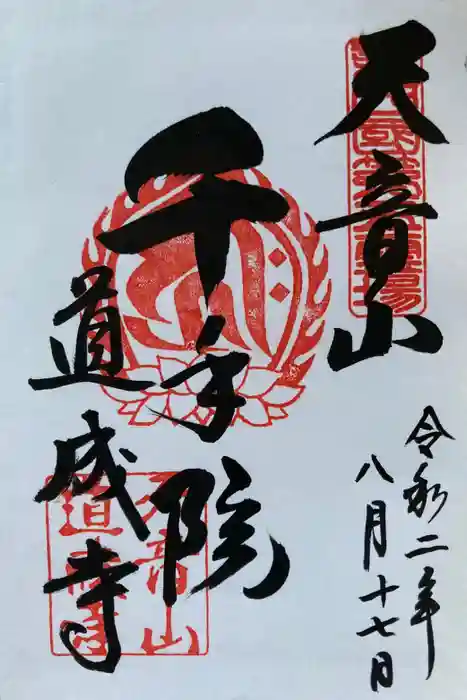 天音山
千手院
道成寺
令和二年
八月十七日
天音山
道成寺